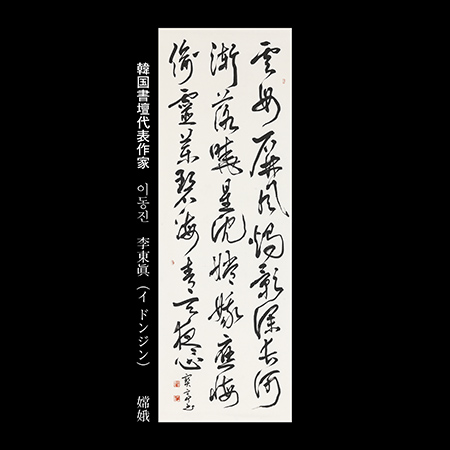 雲母屏風燭影深長河
漸落曉星沈嫦娥應悔
偷靈藥碧海青天夜々心
韓国書壇代表作家　이동진　李東眞（イ ドンジン）　嫦娥